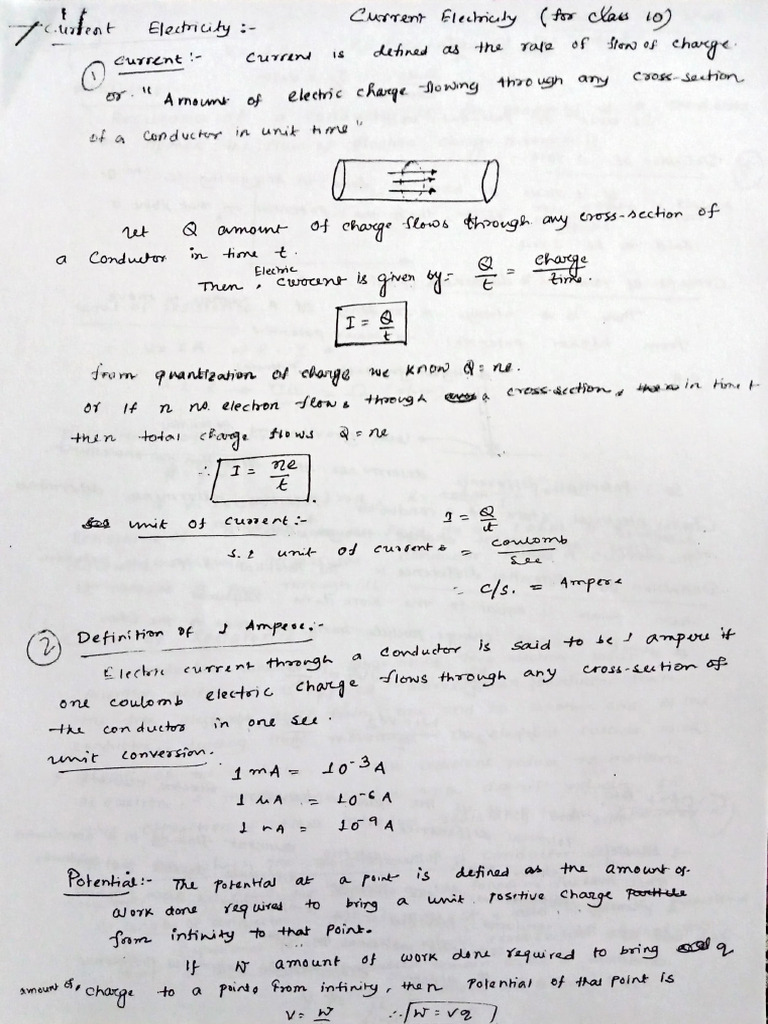 Current Electricity :- Current Electricity (for Class 10)
① Current :- Current is defined as the rate of flow of charge.
or " Amount of electric charge flowing through any cross-section
of a conductor in unit time"
Let Q amount of charge flows through any cross-section of
a Conductor in time t.
Then, Electric current is given by:- Q/t = charge/time.
I = Q/t
from quantization of charge we know Q = ne.
or If n no. electron flows through a cross-section, in time t
then total charge flows Q = ne
∴ I = ne/t.
unit of current :- I = Q/t
S.I unit of current = coulomb/sec
= C/s. = Ampere
② Definition of 1 Ampere :-
Electric current through a conductor is said to be 1 ampere if
one coulomb electric charge flows through any cross-section of
the conductor in one sec.
unit conversion.
1 mA = 10⁻³ A
1 μA = 10⁻⁶ A
1 nA = 10⁻⁹ A
Potential :- The potential at a point is defined as the amount of
work done required to bring a unit positive charge particle
from infinity to that point.
If W amount of work done required to bring q
amount of charge to a point from infinity, then Potential of that point is
V = W ∴ W = Vq